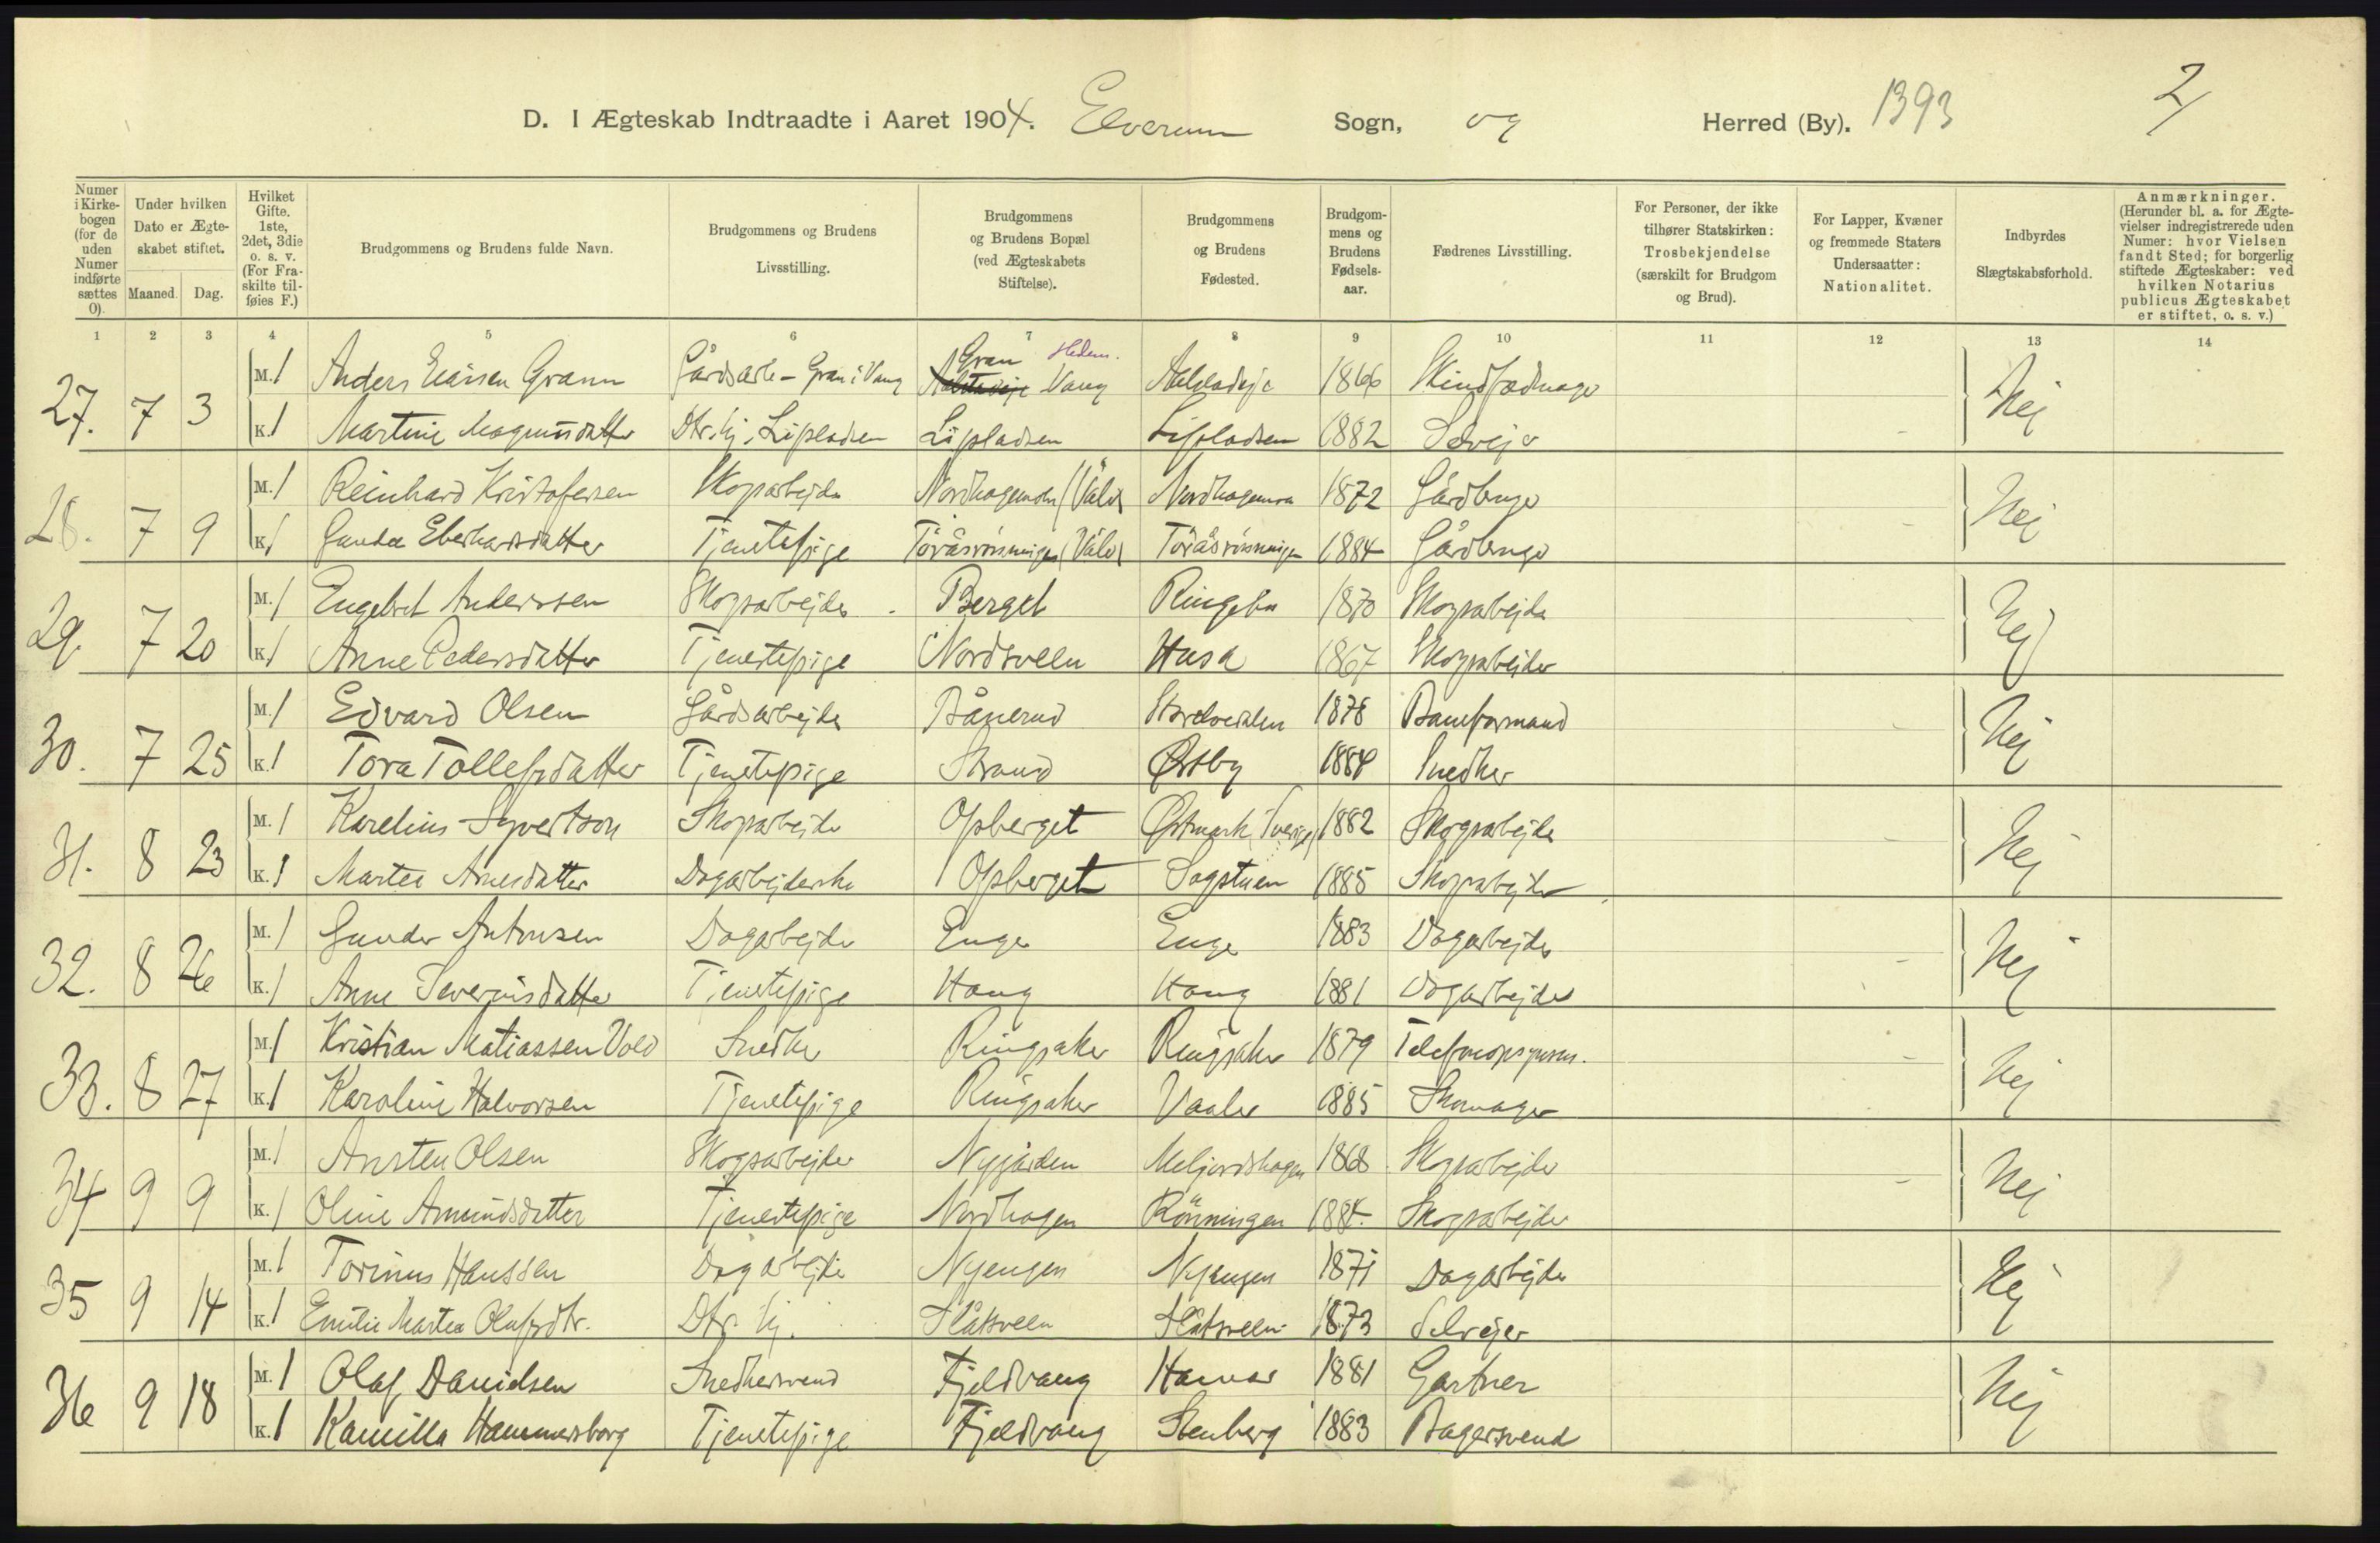 D. I Ægteskab Indtraadte i Aaret 1904. Elverum Sogn, og Herred (By). 1393 2
Numer i Kirkebogen (for de uden Numer indførte sættes 0).
Under hvilken Dato er Ægteskabet stiftet.
Maaned. Dag.
Hvilket Gifte. 1ste, 2det, 3die o. s. v. (For Fraskilte tilføies F.)
Brudgommens og Brudens fulde Navn.
Brudgommens og Brudens Livsstilling.
Brudgommens og Brudens Bopæl (ved Ægteskabets Stiftelse).
Brudgommens og Brudens Fødested.
Brudgommens og Brudens Fødselsaar.
Fædrenes Livsstilling.
For Personer, der ikke tilhører Statskirken: Trosbekjendelse (særskilt for Brudgom og Brud).
For Lapper, Kvæner og fremmede Staters Undersaatter: Nationalitet.
Indbyrdes Slægtskabsforhold.
Anmærkninger. (Herunder bl. a. for Ægtevielser indregistrerede uden Numer: hvor Vielsen fandt Sted; for borgerlig stiftede Ægteskaber: ved hvilken Notarius publicus Ægteskabet er stiftet, o. s. v.)
1 2 3 4 5 6 7 8 9 10 11 12 13 14
27. 7 3 M. 1 Anders Gran i Vang Gran Hedm. Vang 1866 Nej
K. 1 Martine Magnusdatter Dtr. hj. Lipladsen Lipladsen Lipladsen 1882 Selvejer
28. 7 9 M. 1 Reinhard Kristofersen Skogsarbejder 1872 Gårdbruger Nej
K. 1 Gunda Eberhardsdatter Tjenestepige 1884 Gårdbruger
29. 7 20 M. 1 Engebret Anderssen Skogsarbejder Berget Ringebu 1870 Skogsarbejder Nej
K. 1 Anne Pedersdatter Tjenestepige Nordsveen 1867 Skogsarbejder
30. 7 25 M. 1 Edvard Olsen Gårdsarbejder Bånerud 1878 Baneformand Nej
K. 1 Tora Tollefsdatter Tjenestepige Strand Østby 1884 Snedker
31. 8 23 M. 1 Karelius Syvertson Skogsarbejder Opberget Østmark, Sverige 1882 Skogsarbejder Nej
K. 1 Martea Arnesdatter Dagarbejderske Opberget Sagstuen 1885 Skogsarbejder
32. 8 26 M. 1 Gunder Antonsen Dagarbejder Enge Enge 1883 Dagarbejder Nej
K. 1 Anne Severinsdatter Tjenestepige Haug Haug 1881 Dagarbejder
33. 8 27 M. 1 Kristian Matiassen Vold Snedker Ringsaker Ringsaker 1879 Nej
K. 1 Karoline Halvorsen Tjenestepige Ringsaker Vaaler 1885 Skomager
34 9 9 M. 1 Arnsten Olsen Skogsarbejder Nygården 1868 Skogsarbejder Nej
K. 1 Oline Amundsdatter Tjenestepige Nordhagen Rönningen 1884. Skogsarbejder
35 9 14 M. 1 Torinus Hanssen Dagarbejder Nyengen Nyengen 1871 Dagarbejder Nej
K. 1 Emilie Martea Olafsdtr. Dtr. hj. Slåtsveen Slåtsveen 1873 Selvejer
36 9 18 M. 1 Olaf Danielsen Snedkersvend Fjeldvang Hamar 1881 Gartner Nej
K. 1 Kamilla Hammersborg Tjenestepige Fjeldvang Stenberg 1883 Bagersvend